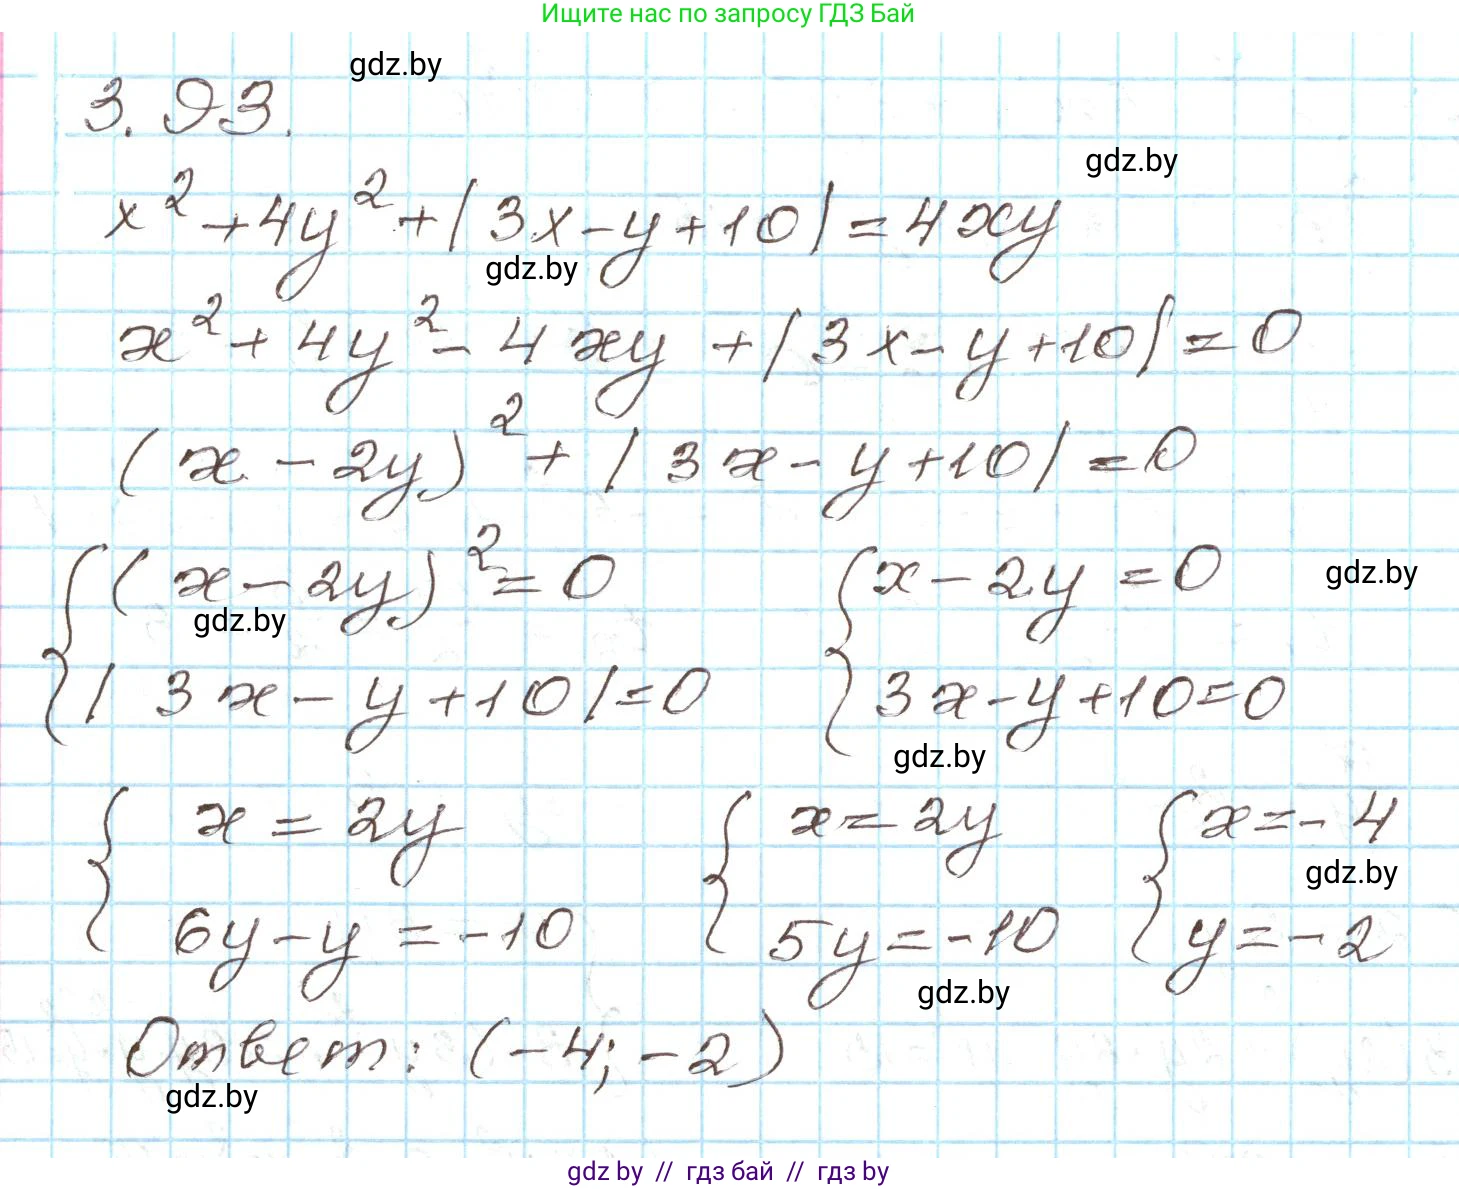 Ищите нас по запросу ГДЗ Бай
gdz.by
3.93.
gdz.by
x² + 4y² + |3x - y + 10| = 4xy
gdz.by
x² + 4y² - 4xy + |3x - y + 10| = 0
(x - 2y)² + |3x - y + 10| = 0
{ (x - 2y)² = 0 { x - 2y = 0 gdz.by
gdz.by
|3x - y + 10| = 0 3x - y + 10 = 0
gdz.by
{ x = 2y { x = 2y { x = -4
gdz.by
6y - y = -10 5y = -10 y = -2
gdz.by
Ответ: (-4; -2)
gdz.by
gdz by // гдз бай // гдз by